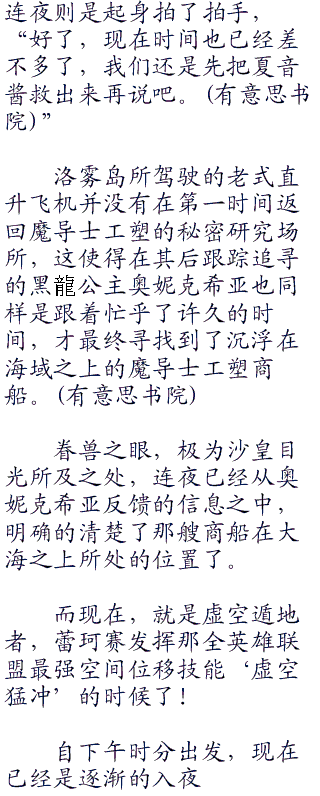 连夜则是起身拍了拍手，
“好了，现在时间也已经差
不多了，我们还是先把夏音
酱救出来再说吧。(有意思书
院)”
洛雾岛所驾驶的老式直
升飞机并没有在第一时间返
回魔导士工塑的秘密研究场
所，这使得在其后跟踪追寻
的黑龍公主奥妮克希亚也同
样是跟着忙乎了许久的时
间，才最终寻找到了沉浮在
海域之上的魔导士工塑商
船。(有意思书院)
眷兽之眼，极为沙皇目
光所及之处，连夜已经从奥
妮克希亚反馈的信息之中，
明确的清楚了那艘商船在大
海之上所处的位置了。
而现在，就是虚空遁地
者，蕾珂赛发挥那全英雄联
盟最强空间位移技能‘虚空
猛冲’的时候了！
自下午时分出发，现在
已经是逐渐的入夜